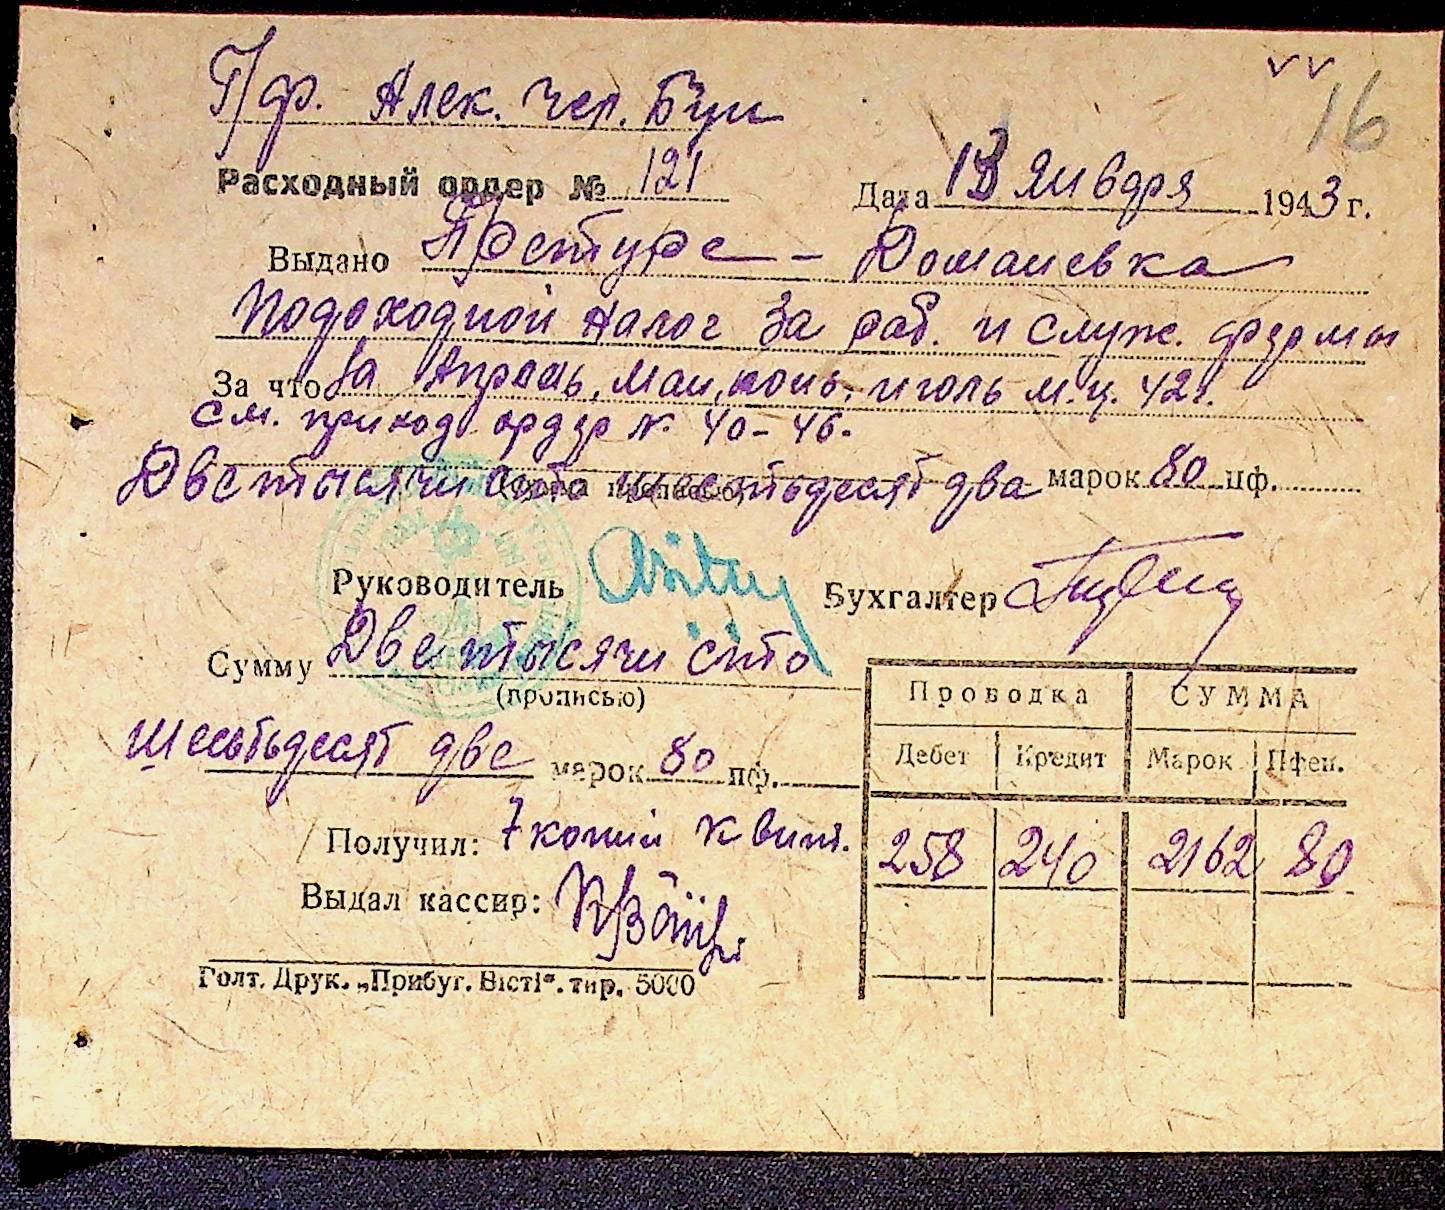 16
Г/ф. Алек. Чер. Буг
Расходный ордер № 121
Дата 13 января 1943 г.
Выдано Претуре – Доманевка
Подоходной налог за раб. и служ. фермы
За что за Апрель, маи, июнь, июль м.ц. 42 г.
см. приход ордер № 40–46.
Две тысячи сто шестьдесят два марок 80 пф.
Руководитель Бухгалтер
Сумму Две тысячи сто
(прописью)
шестьдесят две марок 80 пф.
Проводка СУММА
Дебет Кредит Марок Пфен.
258 240 2162 80
Получил: 7 копий квит.
Выдал кассир:
Голт. Друк. „Прибуг. Вісті“. тир. 5000